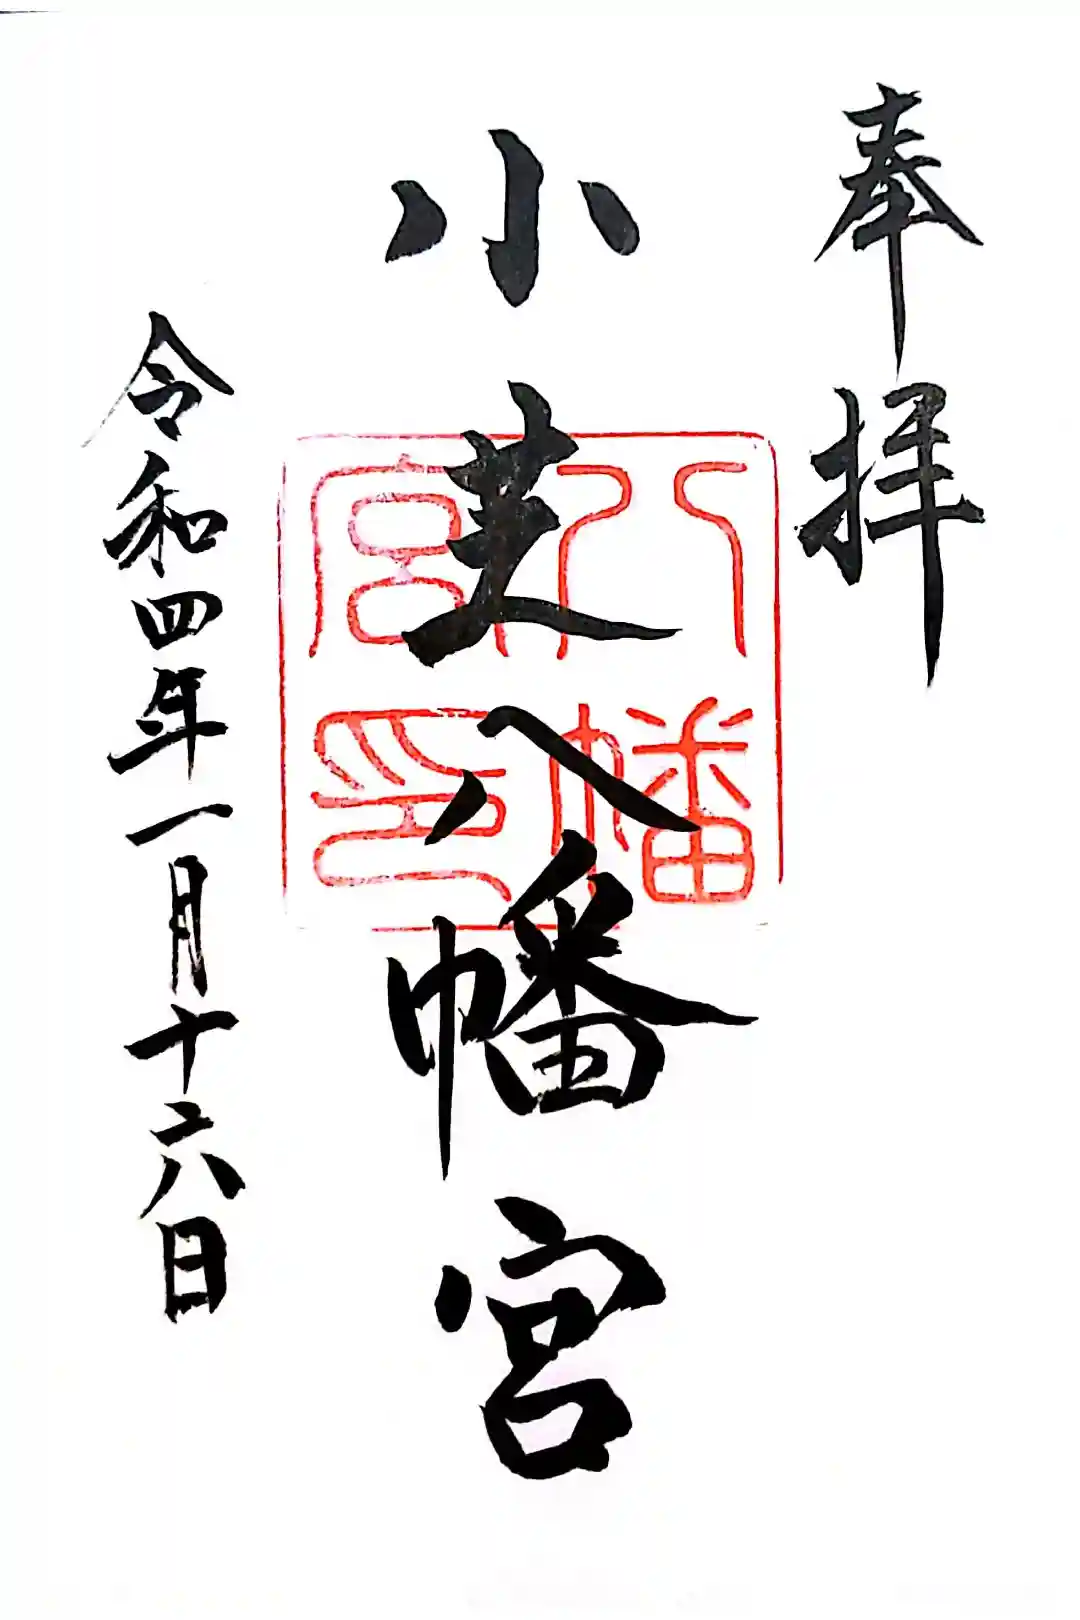 奉拝
小芝八幡宮
八幡
宮印
令和四年一月十六日